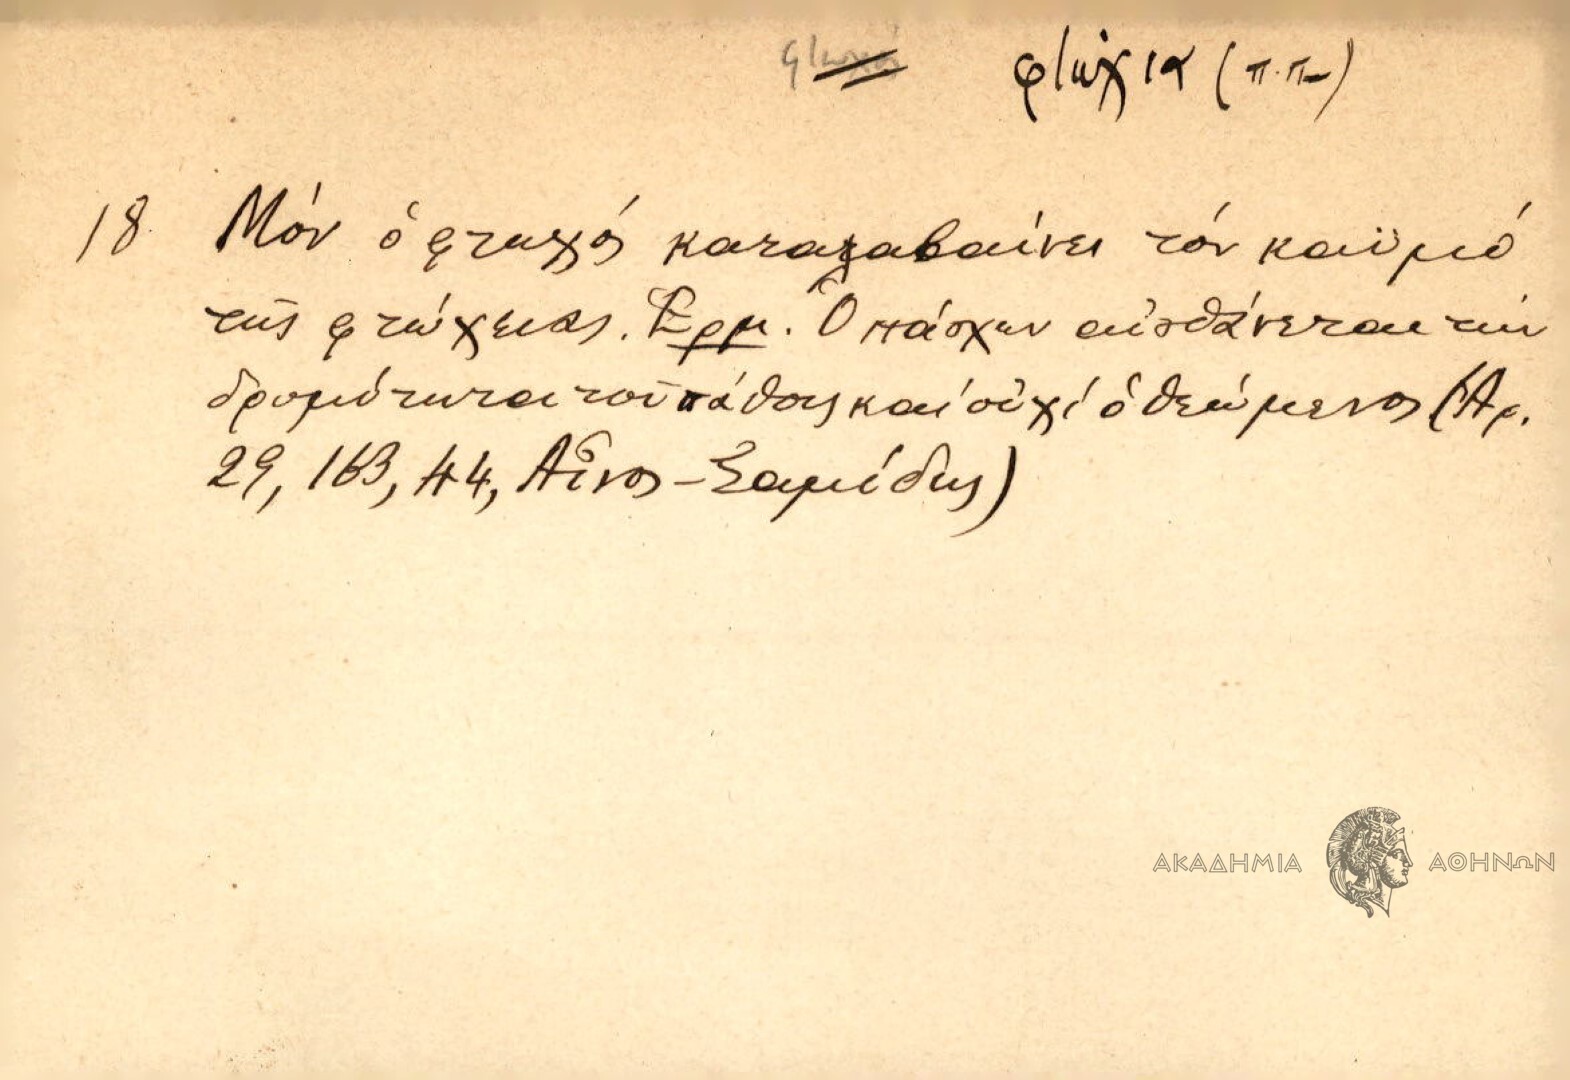 φτώχια (π.π.)
18 Μόν ὁ φτωχός καταλαβαίνει τόν καϋμό
τῆς φτώχειας. Ἑρμ. Ὁ πάσχων αἰσθάνεται τήν
δριμύτητα τοῦ πάθους καί οὐχί ὁ θεώμενος (Ἀρ.
29, 163, 44, Αἶνος - Σαμίδης)
ΑΚΑΔΗΜΙΑ ΑΘΗΝΩΝ